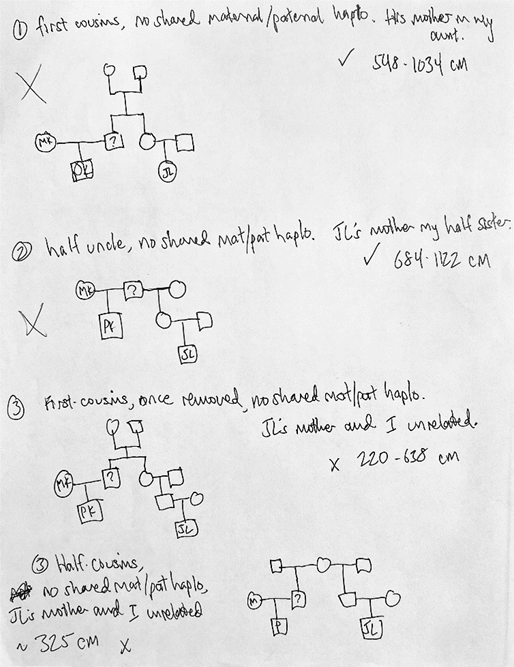 ① first cousins, no shared maternal/paternal haplo. His mother is my
aunt.
✓ 548-1034 cM
X
MK
?
PK
JL
② half uncle, no shared mat/pat haplo. JL's mother my half sister.
✓ 684-1122 cM
X
MK
?
PK
JL
③ First-cousins, once removed, no shared mat/pat haplo.
JL's mother and I unrelated.
x 220-638 cM
MK
?
PK
JL
③ Half-cousins,
no shared mat/pat haplo,
JL's mother and I unrelated
~ 325 cM x
M
?
P
JL